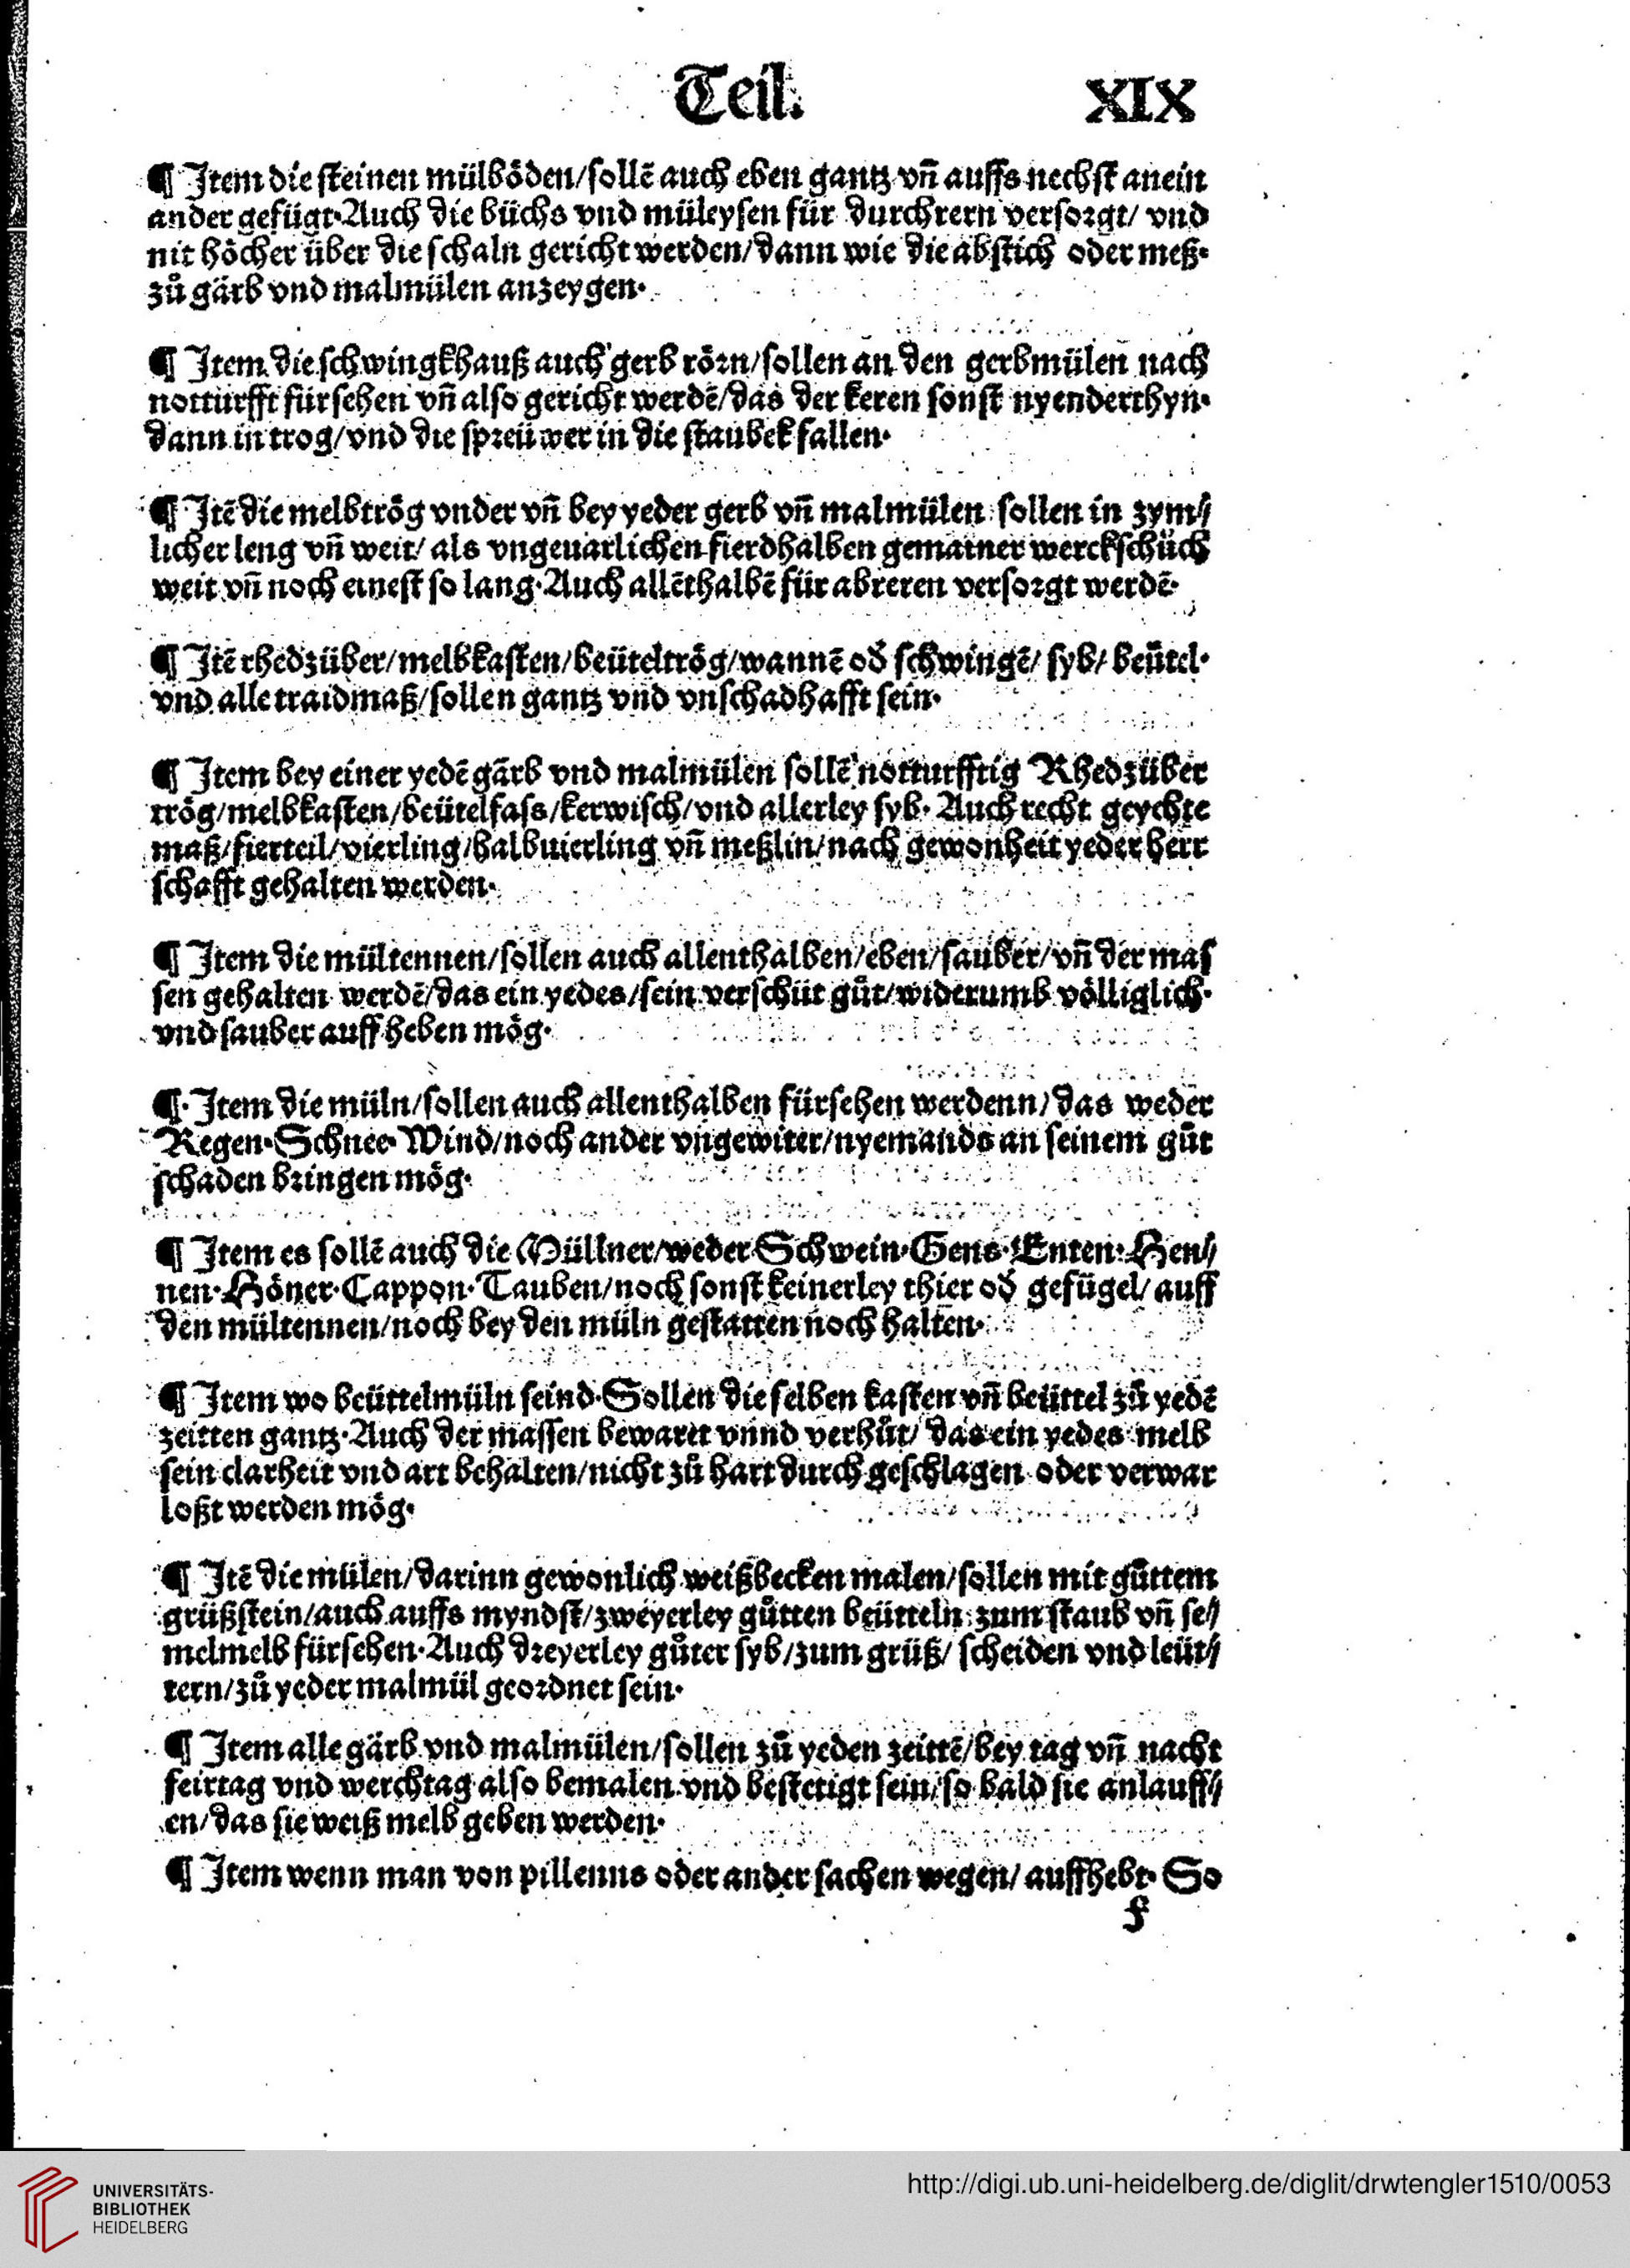 Teil. XIX
¶ Item die steinen mülböden/sollē auch eben gantz vn̄ auffs nechst anein
ander gefügt·Auch die büchs vnd müleysen für durchrern versorgt/ vnd
nit höcher über die schaln gericht werden/dann wie die abstich oder meß·
zů gärb vnd malmülen anzeygen·
¶ Item die schwingkhauß auch gerb rörn/sollen an den gerbmülen nach
notturfft fürsehen vn̄ also gericht werdē/das der keren sonst nyenderthyn·
dann in trog/vnd die spreüwer in die staubek fallen·
¶ Itē die melbtrög vnder vn̄ bey yeder gerb vn̄ malmülen sollen in zym⸗
licher leng vn̄ weit/ als vngeuarlichen fierdhalben gemainer werckschůch
weit vn̄ noch einest so lang·Auch allēthalbē für abreren versorgt werdē·
¶ Itē rhedzüber/melbkasten/beüteltrög/wannē oď schwingē/ syb/ beütel·
vnd alle traidmaß/sollen gantz vnd vnschadhafft sein·
¶ Item bey einer yedē gärb vnd malmülen sollē notturfftig Rhedzüber
trög/melbkasten/beütelfass/kerwisch/vnd allerley syb· Auch recht geychte
maß/fierteil/vierling/halbuierling vn̄ meßlin/nach gewonheit yeder herr
schafft gehalten werden·
¶ Item die mültennen/sollen auch allenthalben/eben/sauber/vn̄ der mas
sen gehalten werdē/das ein yedes/sein verschüt gůt/widerumb völliglich·
vnd sauber auff heben mög·
¶ Item die müln/sollen auch allenthalben fürsehen werdenn/das weder
Regen·Schnee·Wind/noch ander vngewiter/nyemands an seinem gůt
schaden bringen mög·
¶ Item es sollē auch die Müllner/weder Schwein·Gens·Enten·Hen⸗
nen·Höner·Cappon·Tauben/noch sonst keinerley thier oď gefügel/ auff
den mültennen/noch bey den müln gestatten noch halten·
¶ Item wo beüttelmüln seind·Sollen die selben kasten vn̄ beüttel zů yedē
zeitten gantz·Auch der massen bewaret vnnd verhůt/ das ein yedes melb
sein clarheit vnd art behalten/nicht zů hart durch geschlagen oder verwar
loßt werden mög·
¶ Itē die mülen/darinn gewonlich weißbecken malen/sollen mit gůttem
grüßstein/auch auffs myndst/zweyerley gůtten beütteln zum staub vn̄ se⸗
melmelb fürsehen·Auch dreyerley gůter syb/zum grüß/ scheiden vnd leüt⸗
tern/zů yeder malmül geordnet sein·
¶ Item alle gärb vnd malmülen/sollen zů yeden zeittē/bey tag vn̄ nacht
feirtag vnd werchtag also bemalen vnd bestetigt sein/so bald sie anlauff⸗
en/das sie weiß melb geben werden·
¶ Item wenn man von pillenns oder ander sachen wegen/ auffhebt· So
f
UNIVERSITÄTS-
BIBLIOTHEK
HEIDELBERG
http://digi.ub.uni-heidelberg.de/diglit/drwtengler1510/0053